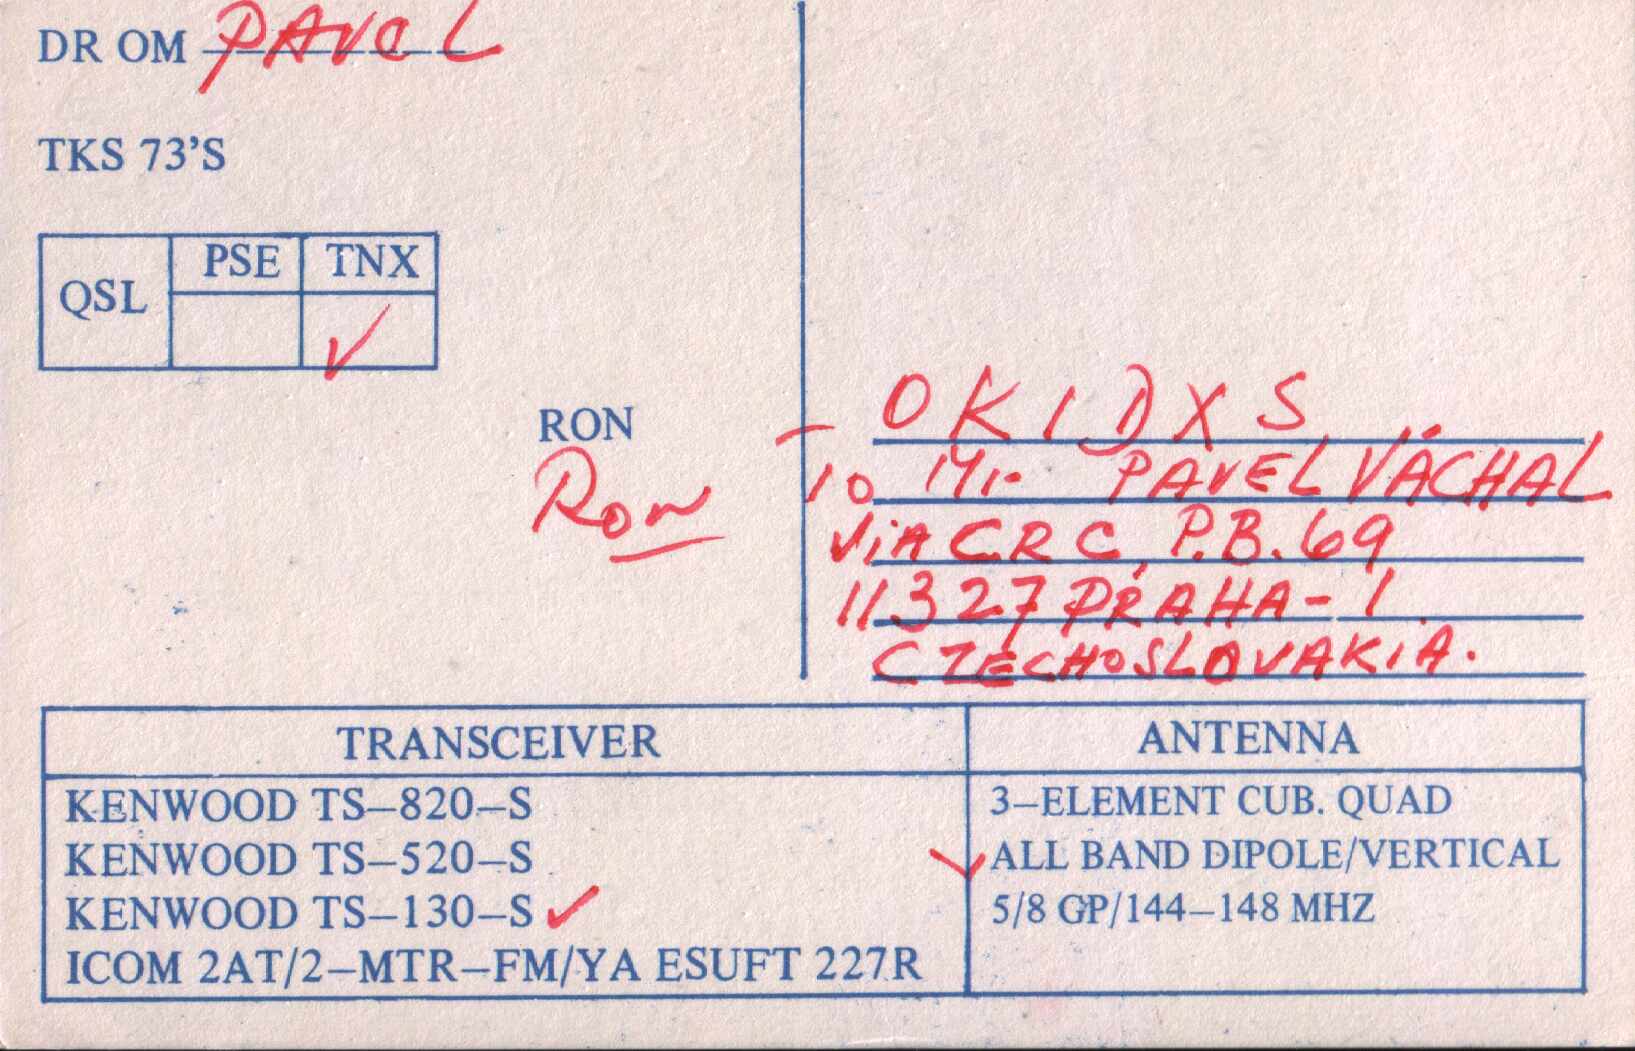 DR OM PAVEL
TKS 73'S
QSL PSE TNX
✓
RON
Ron
OK1DXS
TO Mr. PAVEL VÁCHAL
ViA C.R.C, P.B. 69
11327 PRAHA-1
CZECHOSLOVAKIA.
TRANSCEIVER
KENWOOD TS–820–S
KENWOOD TS–520–S
KENWOOD TS–130–S ✓
ICOM 2AT/2–MTR–FM/YA ESUFT 227R
ANTENNA
3–ELEMENT CUB. QUAD
✓ ALL BAND DIPOLE/VERTICAL
5/8 GP/144–148 MHZ